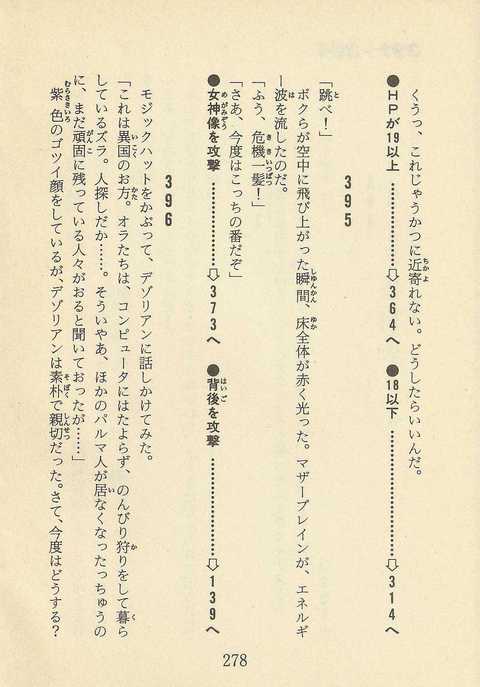 くうっ、これじゃうかつに近寄れない。どうしたらいいんだ。
●HPが19以上…………⇨364へ ●18以下…………⇨314へ
395
「跳べ!」
ボクらが空中に飛び上がった瞬間、床全体が赤く光った。マザーブレインが、エネルギ
ー波を流したのだ。
「ふう、危機一髪!」
「さあ、今度はこっちの番だぞ」
●女神像を攻撃…………⇨373へ ●背後を攻撃…………⇨139へ
396
モジックハットをかぶって、デゾリアンに話しかけてみた。
「これは異国のお方。オラたちは、コンピュータにはたよらず、のんびり狩りをして暮ら
しているズラ。人探しだか……。そういやあ、ほかのパルマ人が居なくなったっちゅうの
に、まだ頑固に残っている人々がおると聞いておったが……」
紫色のゴツイ顔をしているが、デゾリアンは素朴で親切だった。さて、今度はどうする?
278